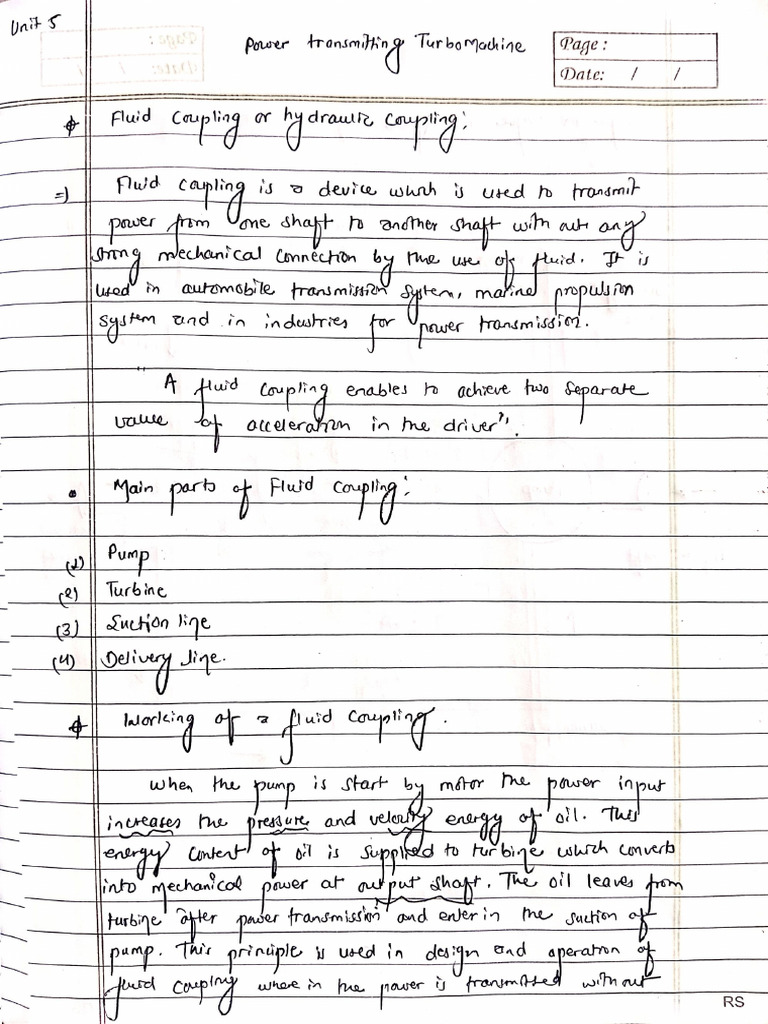 Unit 5
Power transmitting TurboMachine
Page :
Date: / /
Fluid Coupling or hydraulic coupling:
=) Fluid coupling is a device which is used to transmit
power from one shaft to another shaft with out any
strong mechanical connection by the use of fluid. It is
used in automobile transmission system, marine propulsion
system and in industries for power transmission.
"A fluid coupling enables to achieve two separate
value of acceleration in the driver".
• Main parts of Fluid Coupling:
(1) Pump
(2) Turbine
(3) Suction line
(4) Delivery line.
Working of a fluid coupling.
When the pump is start by motor the power input
increases the pressure and velocity energy of oil. This
energy content of oil is supplied to turbine which converts
into mechanical power at output shaft. The oil leaves from
turbine after power transmission and enter in the suction of
pump. This principle is used in design and operation of
fluid coupling where in the power is transmitted without
RS